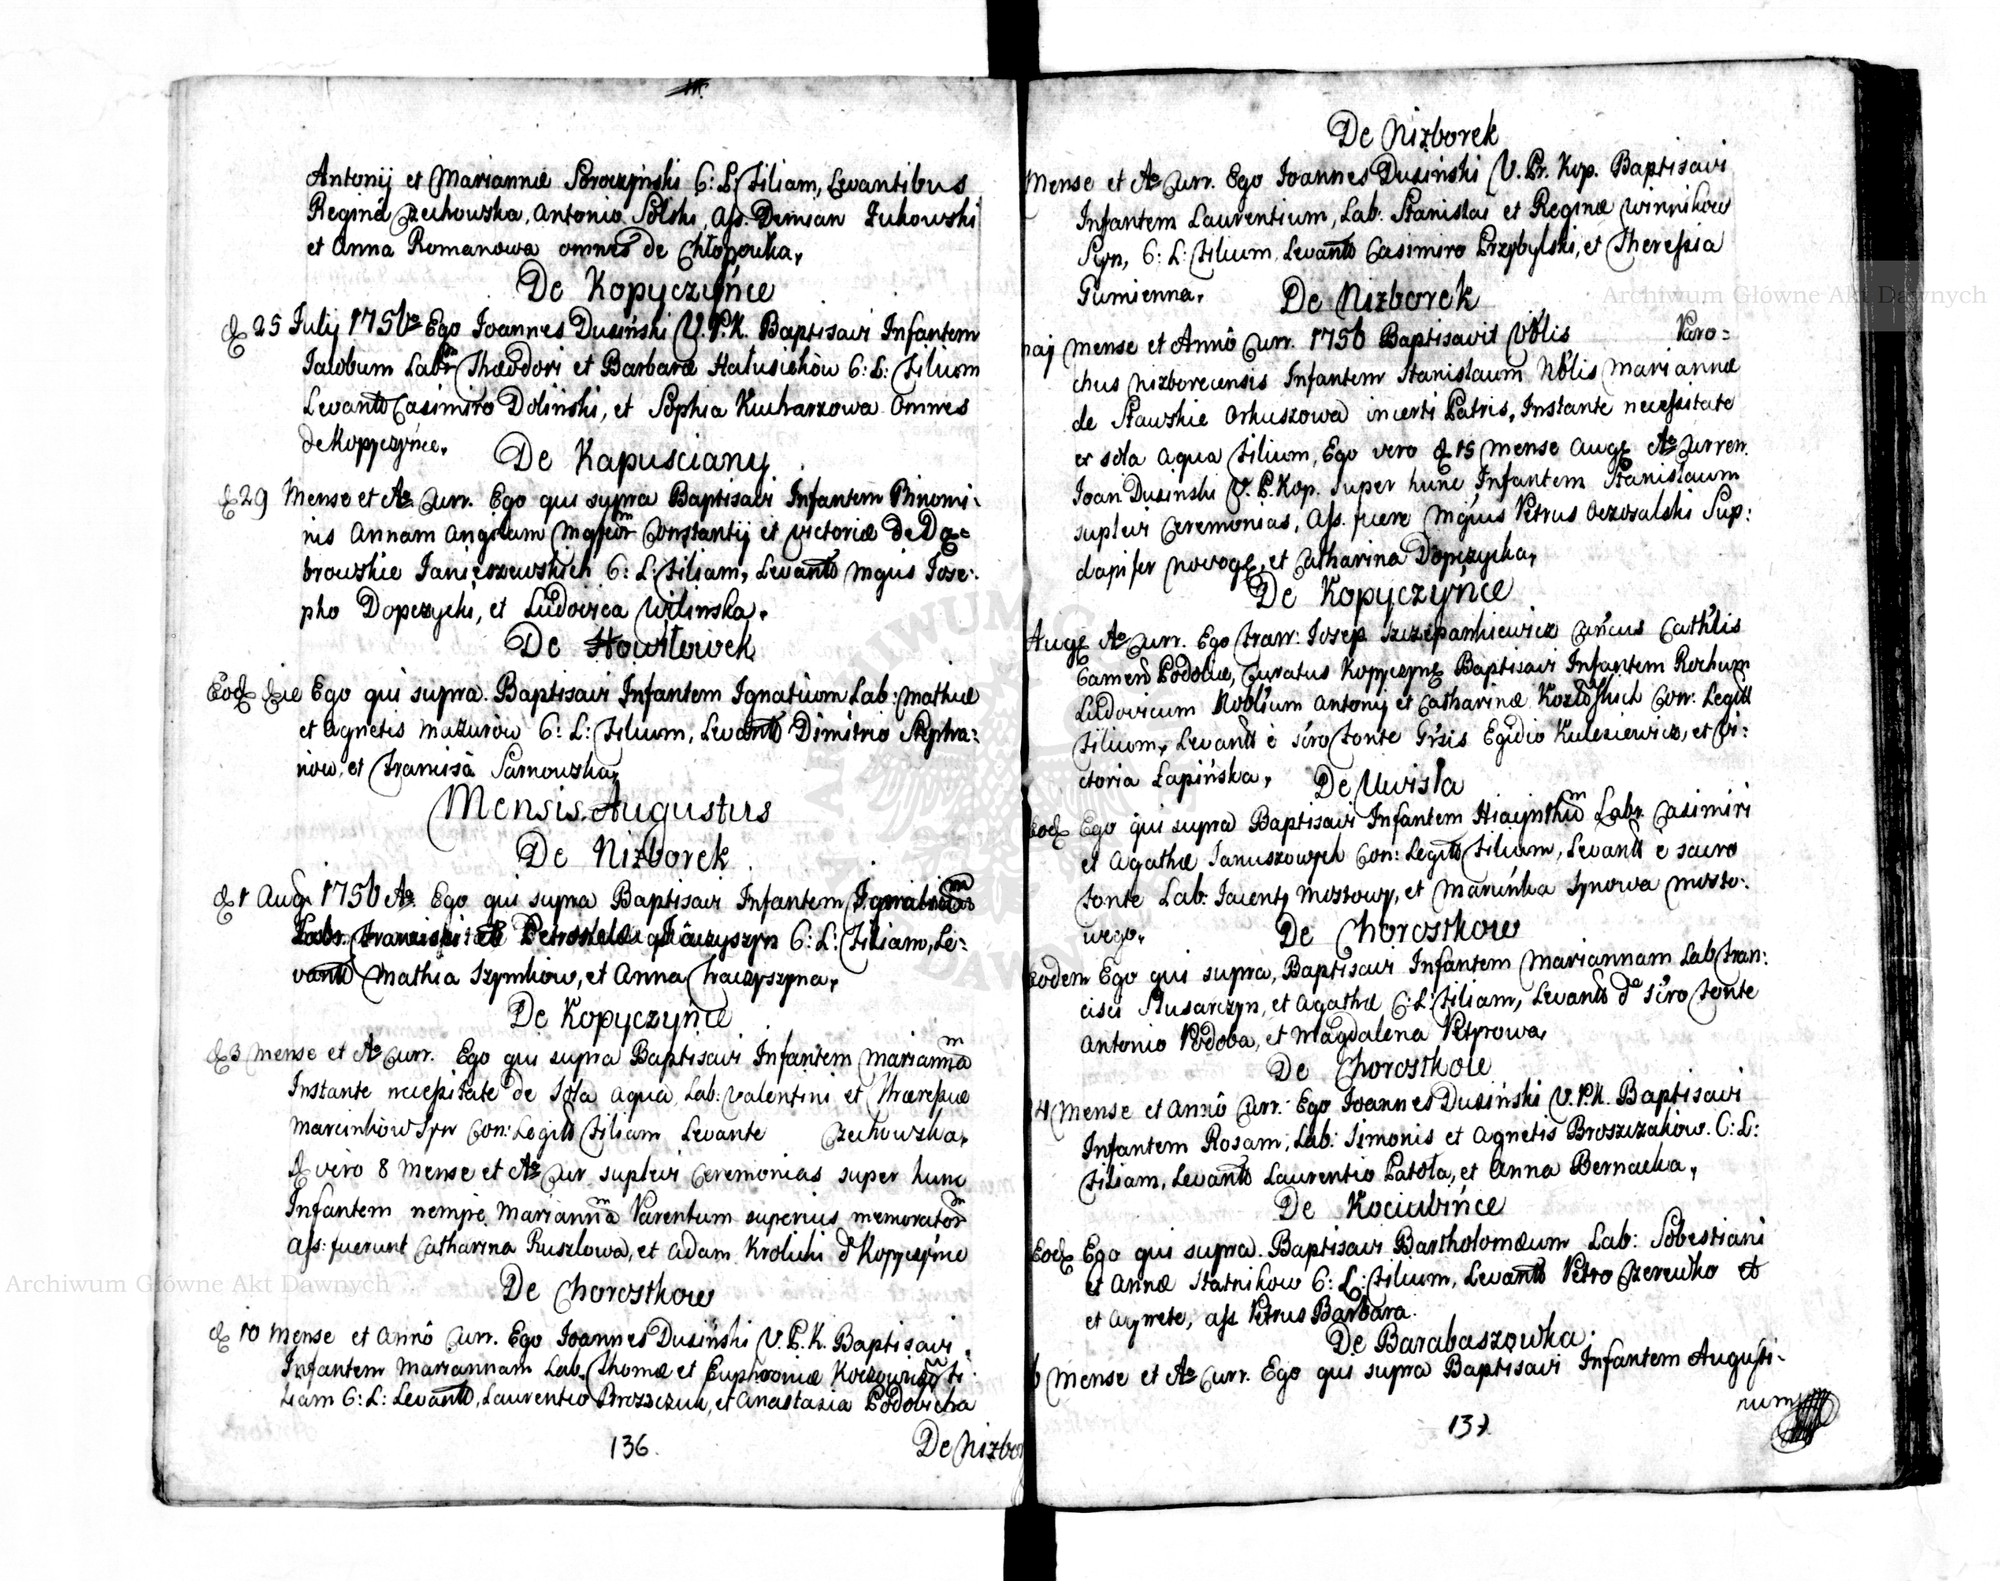 Antonij et Mariannæ Soroczynski C: L: Filiam, Levantibus
Regina Czechowska, Antonio Solski, Ass. Demian Zukowski
et Anna Romanowa omnes de Chłopowka,
De Kopyczyńce
25 Julij 1756 Ego Joannes Dusiński V. P. K. Baptisavi Infantem
Jacobum Labr Theodori et Barbaræ Hałusichow C: L: Filium
Levantb Casimiro Doliński, et Sophia Kucharzowa omnes
de Kopyczyńce.
De Kapusciany
29 Mense et Ao Curr. Ego qui supra Baptisavi Infantem Binomi-
nis Annam Angelam Constantij et Victoriæ de Da-
browskie Janiszewskich C: L: Filiam, Levantb Mgius Jose:
pho Dopczychi, et Ludovica Wilinska.
De Howiłowek
Eod die Ego qui supra Baptisavi Infantem Ignatium Lab: Mathiæ
et Agnetis Mazurow C: L: Filium, Levantb Dimitrio Stepha:
now, et Francisca Sarnowska,
Mensis Augustus
De Nizborek
1 Aug 1756 Ao Ego qui supra Baptisavi Infantem
C: L: Filiam, Le:
vantb Mathia Szymkow, et Anna
De Kopyczynce
3 Mense et Ao Curr. Ego qui supra Baptisavi Infantem Mariannam
Instante necessitate de Sola Aqua, Lab: Valentini et Theresiæ
Marcinkow Con: Legitt Filiam Levante Czechowska,
vero 8 Mense et Ao Cur suplevi Ceremonias super hunc
Infantem nempe Mariannam Parentum superius memorator
Ass: fuerunt Catharina Ruszlowa, et Adam Krolichi d Kopyczyńce
De Chorostkow
10 Mense et Annô Curr. Ego Joannes Dusiński V. P. K. Baptisavi
Infantem Mariannam Lab. Thomæ et Euphroniæ Fi:
liam C: L: Levantb, Laurentio Broszczuk, et Anastasia Podobicha
136.
De Nizbor
De Nizborek
Mense et Ao Curr. Ego Joannes Dusiński V. Pr. Kop. Baptisavi
Infantem Laurentium, Lab: Stanislai et Reginæ Winnikow
Syn, C: L: Filium, Levantb Casimiro Przybylski, et Theressia
Gumienna.
De Nizborek
Maj Mense et Annô Curr. 1756 Baptisavit Vblis Paro:
chus Nizborecensis Infantem Stanislaum Nblis Mariannæ
de Stawskie Orkuszowa incerti Patris, Instante necessitate
ex sola Aqua Filium, Ego vero 15 Mense Aug Ao Curren
Joan Dusinski V. P. Kop. super hunc Infantem Stanislaum
suplevi Ceremonias, Ass. fuere Mgius Petrus Sup:
dapifer Novog, et Catharina Dopczycka,
De Kopyczyńce
Aug Ao Curr. Ego Fran: Josep Szczepankiewicz Cathlis
Camen Podoliæ, Curatus Kopyczyn Baptisavi Infantem Rochum
Ludovicum Nobilium Antonij et Catharinæ Con: Legitt
Filium, Levantb è scro Fonte Egidio Kulesiewicz, et Vi:
ctoria Łapińska,
De Uwisła
Eod Ego qui supra Baptisavi Infantem Hiacynthum Labr. Casimiri
et Agathæ Januszowych Con: Legitt Filium, Levantb è sacro
Fonte Lab: Jacenty Mostowy, et Marunka Synowa Mosto:
wego.
De Chorostkow
Eodem Ego qui supra, Baptisavi Infantem Mariannam Lab Fran:
cisci Slusarczyn, et Agathæ C: L: Filiam, Levantb de scro Fonte
Antonio Podoba, et Magdalena Petprowa,
De Chorostkow
14 Mense et Annô Curr. Ego Joannes Dusiński V. P. K. Baptisavi
Infantem Rosam, Lab: Simonis et Agnetis Broszczakow. C: L:
Filiam, Levantb Laurentio Patoła, et Anna Bernacka,
De Kociubińce
Eod Ego qui supra Baptisavi Bartholomæum Lab: Sobestiani
et Annæ Statnikow C: L: Filium, Levantb Petro Czerewko et
et Agnete, ass Petrus Barbara.
De Barabaszowka:
Mense et Ao Curr. Ego qui supra Baptisavi Infantem Augusti-
num
137
Archiwum Główne Akt Dawnych
Archiwum Główne Akt Dawnych